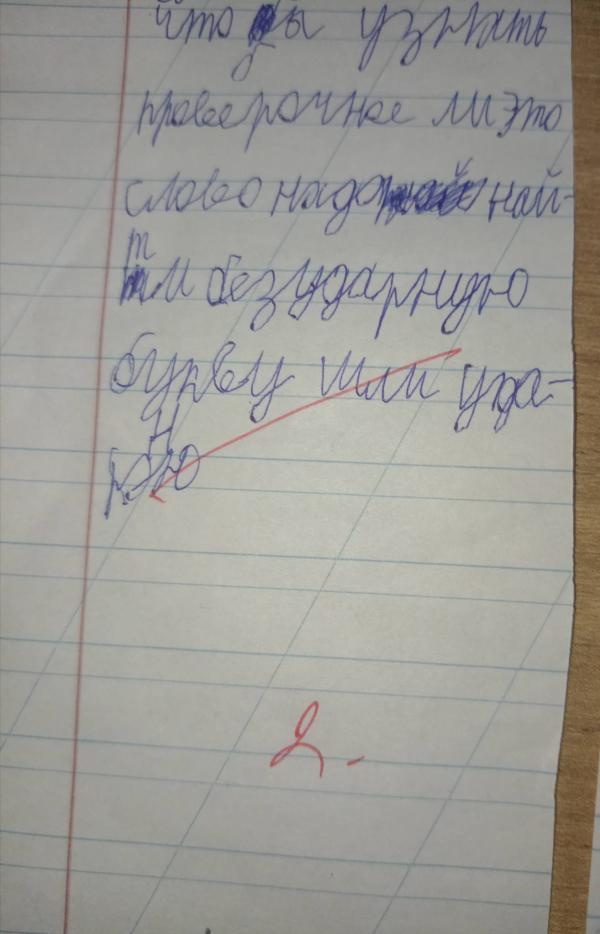 чтобы узнать
проверочное ли это
слово надо най-
ти безударную
букву или уда-
рную
2.